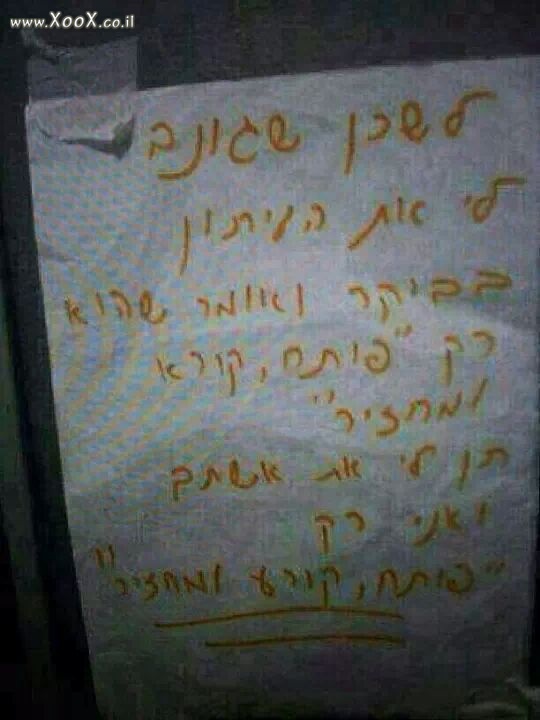 www.XooX.co.il
לשכן שגונב
לי את העיתון
בביקר ואומר שהוא
רק "פותח, קורא
ומחזיר"
תן לי את אשתך
ואני רק
"פותח, קורע ומחזיר"